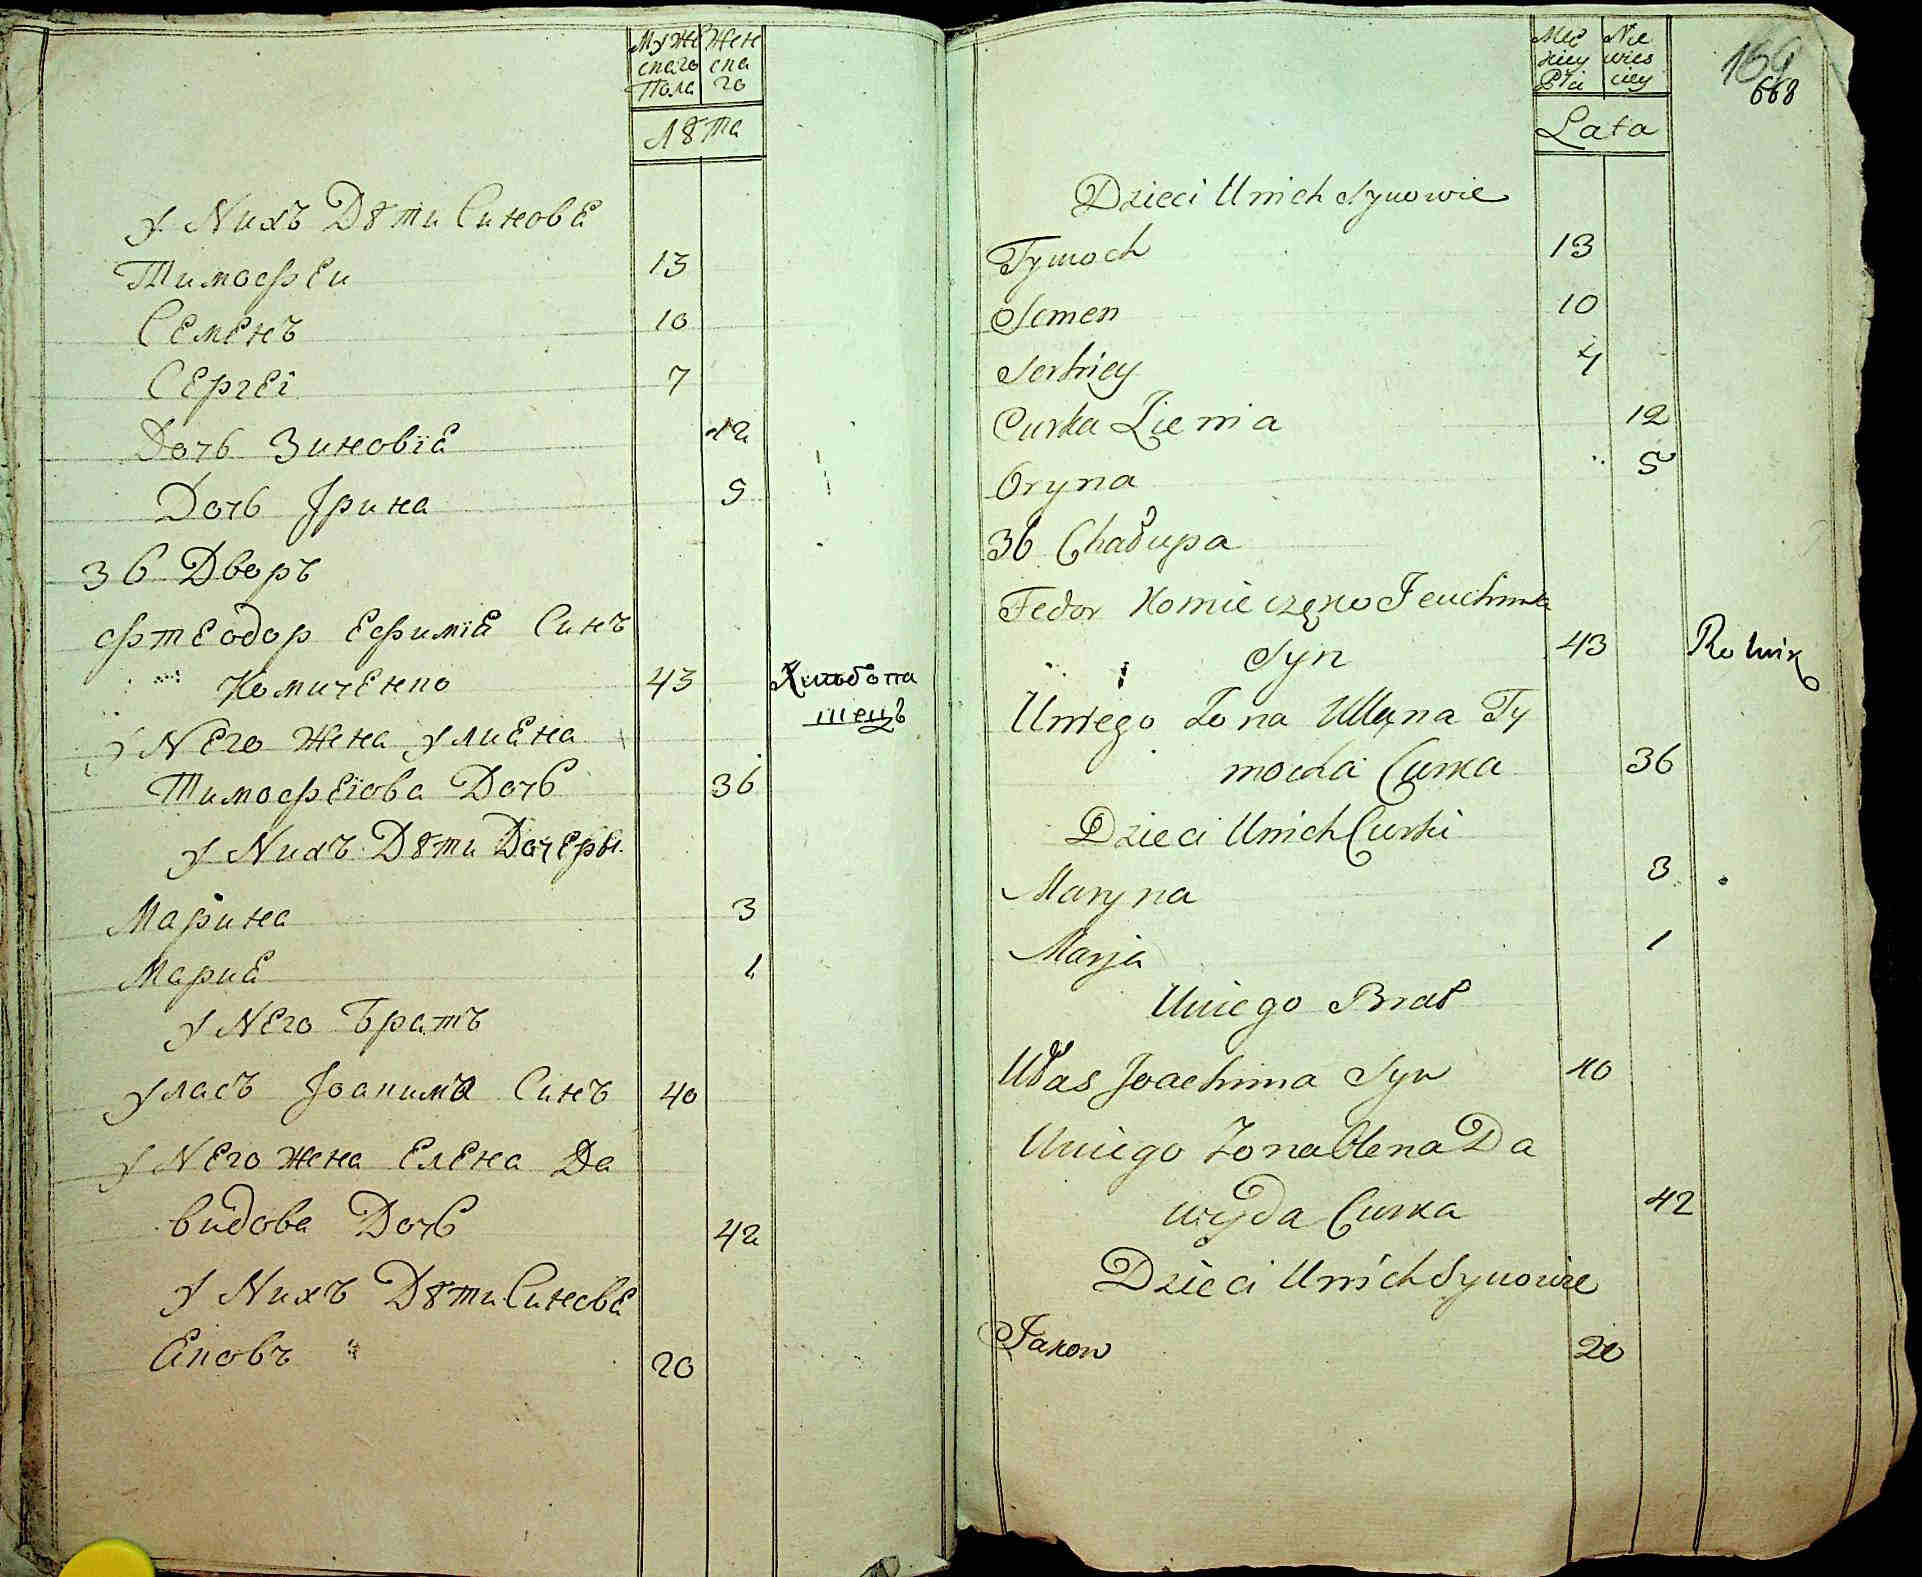 Муже Жен
скаго ска
Пола го
Лѣта
У Nихъ Дѣти Синовѣ
Тимофеи 13
Семенъ 10
Сергеі 7
Дочь Зиновіа 12
Дочь Јрина 5
36 Дворъ
Фтеодор Ефиміа Синъ
Комиченко 43 Хлѣбопа
шецъ
У Nего Жена Улиена
Тимофеіова Дочь 36
У Nихъ Дѣти Дочеры
Марина 3
Марие 1
У Nего Братъ
Уласъ Јоакима Синъ 40
У Nего Жена Елена Да
видова Дочь 42
У Nихъ Дѣти Синовѣ
Ековъ 20
Męz Nie
kiey wies
Płci ciey
668
Lata
Dzieci Unich Synowie
Tymoch 13
Semen 10
Serhiey 7
Curka Zienia 12
Oryna 5
36 Chałupa
Fedor Komieczęko Jeuchima
Syn 43 Rolnik
Uniego Zona Ullana Ty
mocha Curka 36
Dzieci Unich Curki
Maryna 3
Marja 1
Uniego Brat
Ułas Joachima Syn 40
Uniego Zona Olena Da
wyda Curka 42
Dzieci Unich Synowie
Jakow 20